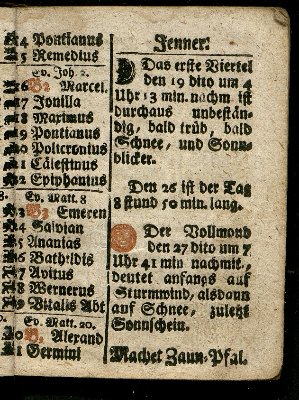 14 Pontianus
15 Remedius
Ev. Joh. 2.
16 B 2 Marcel.
17 Jonilla
18 Maximus
19 Pontianus
20 Policronius
21 Cälestinus
22 Epiphanius
Ev. Matt. 8
23 B 3 Emeren
24 Galvian
25 Ananias
26 Bathildis
27 Avitus
28 Wernerus
29 Vitalis Abt
Ev. Matt. 20.
30 B. Alexand
31 Germini
Jenner.
Das erste Viertel
den 19 dito um 4
Uhr 13 min. nachm ist
durchaus unbestän-
dig, bald trüb, bald
Schnee, und Sonn-
blicker.
Den 26 ist der Tag
8 stund 50 min. lang.
Der Vollmond
den 27 dito um 7
Uhr 41 min nachmit.,
deutet anfangs auf
Sturmwind, alsdann
auf Schnee, zuletzt
Sonnschein.
Machet Zaun-Pfal.